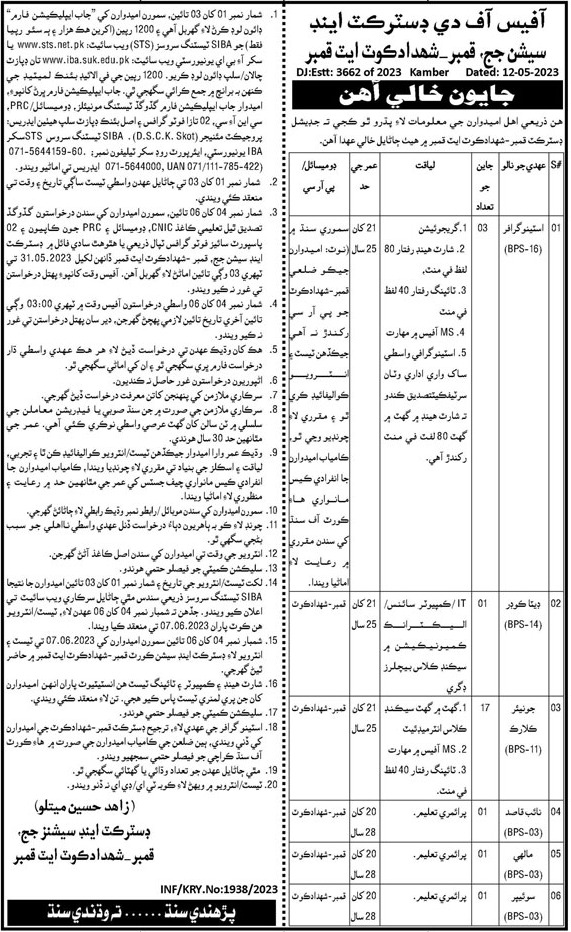 آفيس آف دي ڊسٽرڪٽ اينڊ
سيشن جج، قمبر۔شهدادڪوٽ ايٽ قمبر
DJ:Estt: 3662 of 2023 Kamber Dated: 12-05-2023
جايون خالي آهن
هن ذريعي اهل اميدوارن جي معلومات لاءِ پڌرو ٿو ڪجي ته جڊيشل
ڊسٽرڪٽ قمبر۔شهدادڪوٽ ايٽ قمبر ۾ هيٺ ڄاڻايل خالي عهدا آهن.
S# عهدي جو نالو جاين جو تعداد لياقت عمر جي حد ڊوميسائل/پي آر سي
01 اسٽينوگرافر (BPS-16) 03
1. گريجوئيشن
2. شارٽ هينڊ رفتار 80
لفظ في منٽ،
3. ٽائپنگ رفتار 40 لفظ
في منٽ
4. MS آفيس ۾ مهارت
5. اسٽينوگرافي واسطي
ساک واري اداري وٽان
سرٽيفڪيٽ تصديق ڪندو
ته شارٽ هينڊ ۾ گهٽ ۾
گهٽ 80 لفظ في منٽ
رکندڙ آهي.
21 کان
25 سال
سموري سنڌ ۾
(نوٽ: اميدوارن
جيڪو ضلعي
قمبر-شهدادڪوٽ
جو پي آر سي
رکندڙ نه آهي
جيڪڏهن ٽيسٽ ۽
انٽرويو
ڪواليفائيڊ ڪري
ٿو ۽ مقرري لاءِ
چونڊيو وڃي ٿو،
ڪامياب اميدوارن
جا انفرادي ڪيس
مانواري هاءِ
ڪورٽ آف سنڌ
کي سندن مقرري
۾ رعايت لاءِ
اماڻيا ويندا.
02 ڊيٽا ڪوڊر (BPS-14) 01
IT/ڪمپيوٽر سائنس/
اليڪٽرانڪ
ڪميونيڪيشن ۾
سيڪنڊ ڪلاس بيچلرز
ڊگري
21 کان
25 سال
قمبر-شهدادڪوٽ
03 جونيئر ڪلارڪ (BPS-11) 17
1. گهٽ ۾ گهٽ سيڪنڊ
ڪلاس انٽرميڊيٽ
2. MS آفيس ۾ مهارت
3. ٽائپنگ رفتار 40 لفظ
في منٽ.
21 کان
25 سال
قمبر-شهدادڪوٽ
04 نائب قاصد (BPS-03) 01 پرائمري تعليم. 20 کان 28 سال قمبر-شهدادڪوٽ
05 مالهي (BPS-03) 01 پرائمري تعليم. 20 کان 28 سال قمبر-شهدادڪوٽ
06 سوئيپر (BPS-03) 01 پرائمري تعليم. 20 کان 28 سال قمبر-شهدادڪوٽ
1. شمار نمبر 01 کان 03 تائين، سمورن اميدوارن کي "جاب ايپليڪيشن فارم"
ڊائون لوڊ ڪرڻ لاءِ گهربل آهي ۽ 1200 رپين (اڪرين هڪ هزار ۽ ٻه سئو رپيا
فقط) جو SIBA ٽيسٽنگ سروسز (STS) ويب سائيٽ: www.sts.net.pk يا
سکر آءِ بي اي يونيورسٽي ويب سائيٽ: www.iba.suk.edu.pk تان ڊپازٽ
چالان/سلپ ڊائون لوڊ ڪريو. 1200 رپين جي في الائيڊ بئنڪ لميٽيڊ جي
ڪنهن به برانچ ۾ جمع ڪرائي سگهجي ٿي. جاب ايپليڪيشن فارم ڀرڻ کانپوءِ،
اميدوار جاب ايپليڪيشن فارم گڏوگڏ ٽيسٽنگ مرٽيئلز، ڊوميسائل/PRC،
سي اين آءِ سي، 02 تازا فوٽو گرافس ۽ اصل بئنڪ ڊپازٽ سلپ هيٺين ايڊريس:
پروجيڪٽ مئنيجر (D.S.C.K. Skot) SIBA ٽيسٽنگ سروس STS سکر
IBA يونيورسٽي، ايئرپورٽ روڊ سکر ٽيليفون نمبر: 60-5644159-071
(071-5644000, UAN 071/111-785-422) ايڊريس تي اماڻيو ويندو.
2. شمار نمبر 01 کان 03 تي ڄاڻايل عهدن واسطي ٽيسٽ ساڳي تاريخ ۽ وقت تي
منعقد ڪئي ويندي.
3. شمار نمبر 04 کان 06 تائين، سمورن اميدوارن کي سندن درخواستون گڏوگڏ
تصديق ٿيل تعليمي ڪاغذ، CNIC، ڊوميسائل ۽ PRC جون ڪاپيون ۽ 02
پاسپورٽ سائيز فوٽو گرافس ٽپال ذريعي يا هٿوهٿ سادي فائل ۾ ڊسٽرڪٽ
اينڊ سيشن جج، قمبر-شهدادڪوٽ ايٽ قمبر ڏانهن لکيل 31.05.2023 تي
ٽپهري 03 وڳي تائين اماڻڻ لاءِ گهربل آهن. آفيس وقت کانپوءِ پهتل درخواستن تي
تي غور نه ڪيو ويندو.
4. شمار نمبر 04 کان 06 واسطي درخواستون آفيس وقت ۾ ٽپهري 03:00 وڳي
تائين آخري تاريخ تائين لازمي پهچڻ گهرجن، دير سان پهتل درخواستن تي غور
نه ڪيو ويندو.
5. هڪ کان وڌيڪ عهدن تي درخواست ڏيڻ لاءِ هر هڪ عهدي واسطي ڌار
درخواست فارم ڀري سگهجي ٿو ۽ ان کي اماڻي ٿو.
6. اڻپوريون درخواستون غور حاصل نه ڪنديون.
7. سرڪاري ملازمن کي پنهنجن کاتن معرفت درخواست ڏيڻ گهرجي.
8. سرڪاري ملازمن جي صورت ۾ جن سنڌ صوبي يا فيڊريشن معاملن جي
سلسلي ۾ ٽن سالن کان گهٽ عرصي واسطي نوڪري ڪئي آهي. عمر جي
مٿانهين حد 30 سال هوندي.
9. وڌيڪ عمر وارا اميدوار جيڪڏهن ٽيسٽ/انٽرويو ڪواليفائيڊ ڪن ٿا ۽ تجربي،
لياقت ۽ اسڪلز جي بنياد تي مقرري لاءِ چونڊيا ويندا، ڪامياب اميدوارن جا
انفرادي ڪيس مانواري چيف جسٽس کي عمر جي مٿانهين حد ۾ رعايت ۽
منظوري لاءِ اماڻيا ويندا.
10. سمورن اميدوارن کي سندن موبائل/رابطو نمبر وڌيڪ رابطي لاءِ ڄاڻائڻ گهرجن.
11. چونڊ لاءِ ڪو به ٻاهريون دٻاءُ درخواست ڏنل عهدي واسطي نااهلي جو سبب
بڻجي سگهي ٿو.
12. انٽرويو جي وقت تي اميدوارن کي سندن اصل ڪاغذ آڻڻ گهرجن.
13. سليڪشن ڪميٽي جو فيصلو حتمي هوندو.
14. لکت ٽيسٽ/انٽرويو جي تاريخ ۽ شمار نمبر 01 کان 03 تائين اميدوارن جا نتيجا
SIBA ٽيسٽنگ سروسز ذريعي سندس مٿي ڄاڻايل سرڪاري ويب سائيٽ تي
اعلان ڪيو ويندو. جڏهن ته شمار نمبر 04 کان 06 عهدن لاءِ، ٽيسٽ/انٽرويو
هن ڪوٽ پاران 07.06.2023 تي منعقد ڪيا ويندا.
15. شمار نمبر 04 کان 06 تائين سمورن اميدوارن کي 07.06.2023 تي ٽيسٽ ۽
انٽرويو لاءِ ڊسٽرڪٽ اينڊ سيشن ڪورٽ قمبر-شهدادڪوٽ ايٽ قمبر ۾ حاضر
ٿيڻ گهرجي.
16. شارٽ هينڊ ۽ ڪمپيوٽر ۽ ٽائپنگ ٽيسٽ هن انسٽيٽيوٽ پاران انهن اميدوارن
کان جن پري لمنري ٽيسٽ پاس ڪيو هجي، تن کان ئي ورتي ويندي.
17. سليڪشن ڪميٽي جو فيصلو حتمي هوندو.
18. اسٽينو گرافر جي عهدي لاءِ، ترجيح ڊسٽرڪٽ قمبر-شهدادڪوٽ جي اميدوارن
کي ڏني ويندي، ٻين ضلعن جي ڪامياب اميدوارن جي صورت ۾ هاءِ ڪورٽ
آف سنڌ ڪراچي جو فيصلو حتمي سمجهيو ويندو.
19. مٿي ڄاڻايل عهدن جو تعداد وڌائي يا گهٽائي سگهجي ٿو.
20. ٽيسٽ/انٽرويو ۾ ويهڻ لاءِ ڪو به ٽي اي/ڊي اي نه ڏنو ويندو.
(زاهد حسين ميتلو)
ڊسٽرڪٽ اينڊ سيشنز جج،
قمبر-شهدادڪوٽ ايٽ قمبر
INF/KRY.No:1938/2023
پڙهندي سنڌ ...... ته وڌندي سنڌ